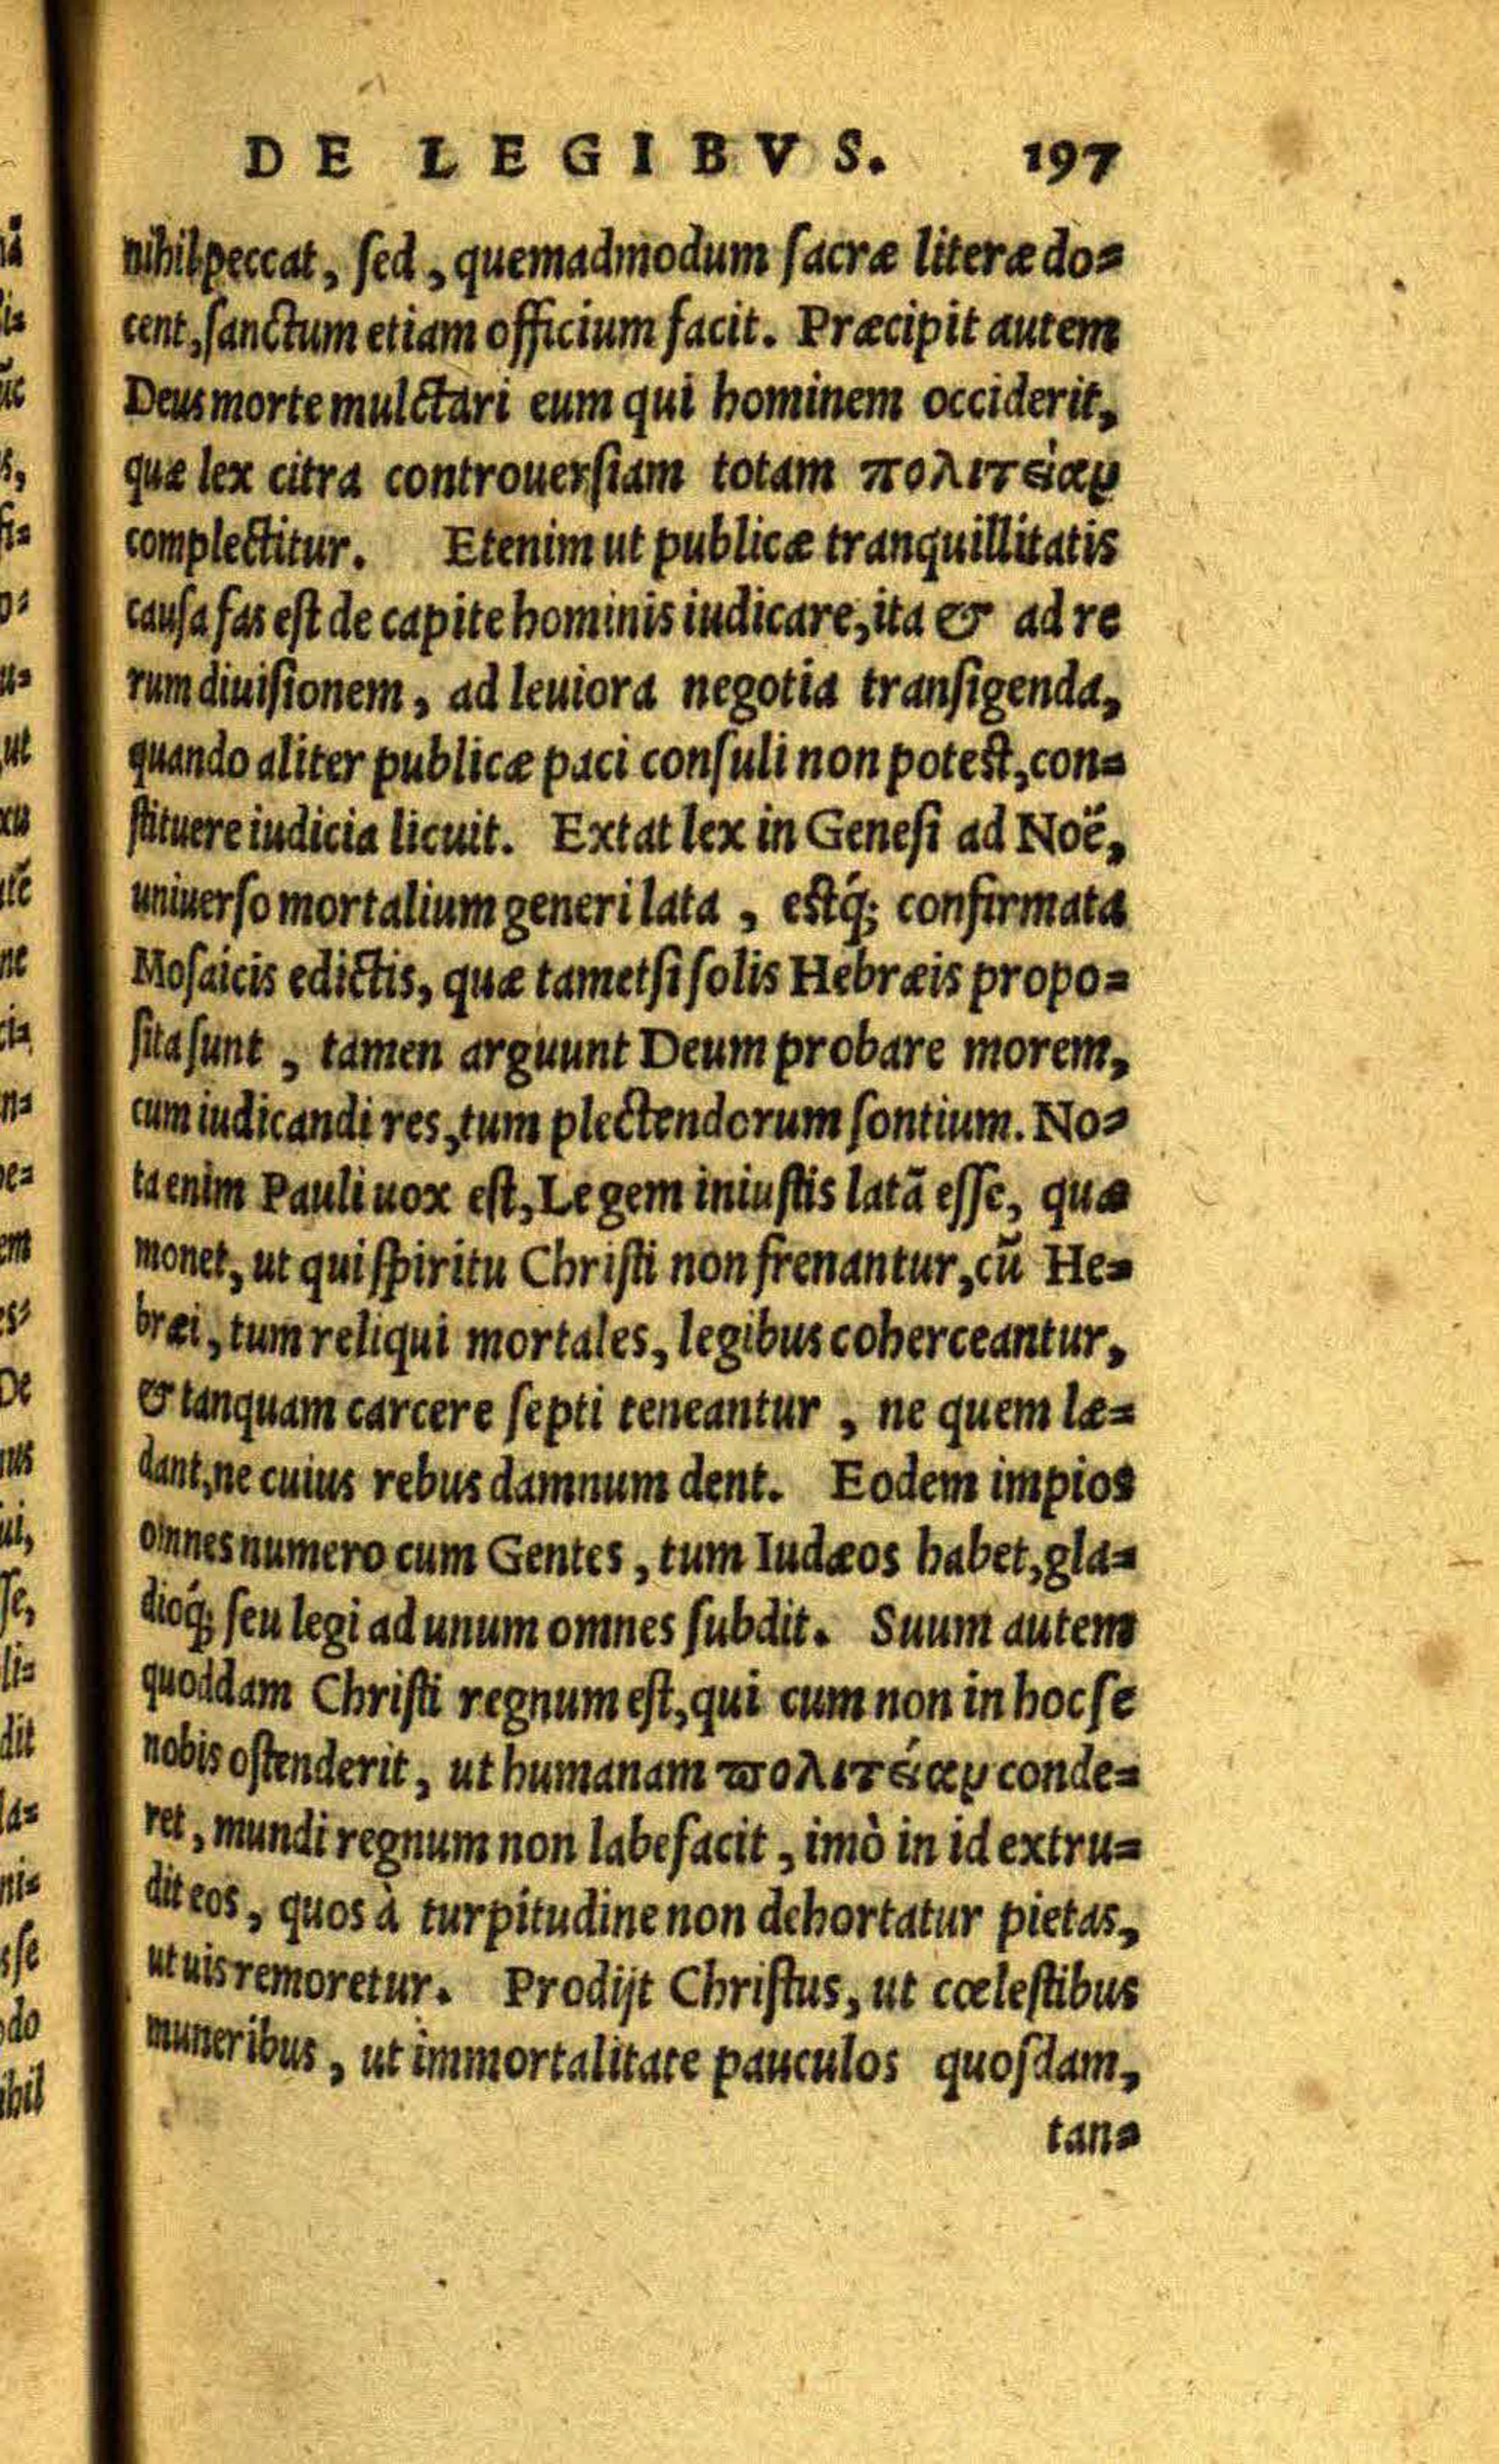 DE LEGIBVS. 197
nihil peccat, sed, quemadmodum sacræ literæ do=
cent, sanctum etiam officium facit. Præcipit autem
Deus morte mulctari eum qui hominem occiderit,
quæ lex citra controuersiam totam πολιτείαν
complectitur. Etenim ut publicæ tranquillitatis
causa fas est de capite hominis iudicare, ita & ad re
rum diuisionem, ad leuiora negotia transigenda,
quando aliter publicæ paci consuli non potest, con=
stituere iudicia licuit. Extat lex in Genesi ad Noë,
uniuerso mortalium generi lata, estq́; confirmata
Mosaicis edictis, quæ tametsi solis Hebræis propo=
sita sunt, tamen arguunt Deum probare morem,
cum iudicandi res, tum plectendorum sontium. No=
ta enim Pauli uox est, Legem iniustis latã esse, quæ
monet, ut qui spiritu Christi non frenantur, cũ He=
bræi, tum reliqui mortales, legibus coherceantur,
& tanquam carcere septi teneantur, ne quem læ=
dant, ne cuius rebus damnum dent. Eodem impios
omnes numero cum Gentes, tum Iudæos habet, gla=
dioq́; seu legi ad unum omnes subdit. Suum autem
quoddam Christi regnum est, qui cum non in hoc se
nobis ostenderit, ut humanam πολιτείαν conde=
ret, mundi regnum non labefacit, imò in id extru=
dit eos, quos à turpitudine non dehortatur pietas,
ut uis remoretur. Prodijt Christus, ut cœlestibus
muneribus, ut immortalitate pauculos quosdam,
tan=